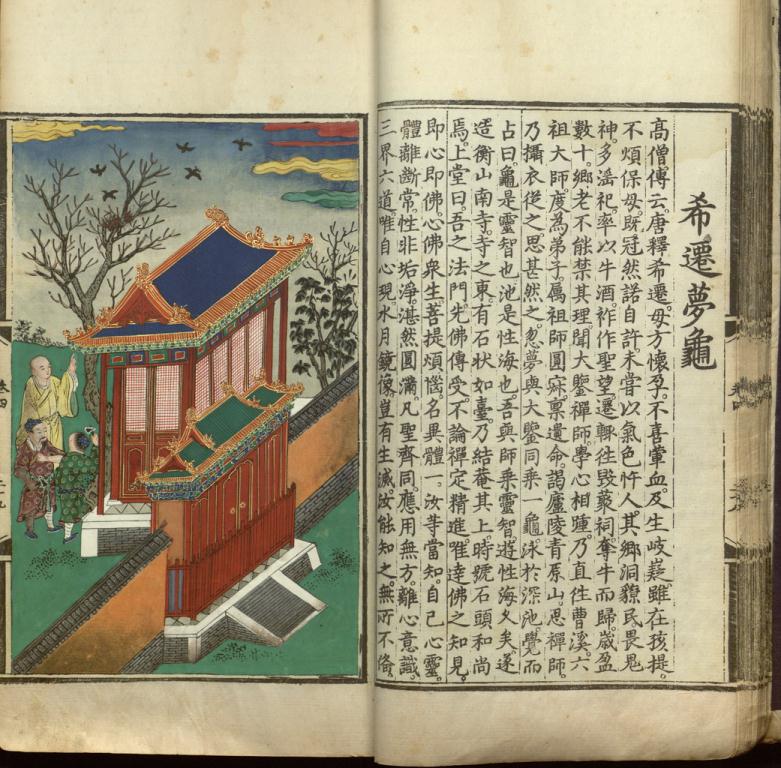 希遷夢龜
高僧傳云唐釋希遷母方懷孕不喜葷血及生岐嶷雖在孩提
不煩保母既冠然諾自許未嘗以氣色忤人其鄉洞獠民畏鬼
神多淫祀率以牛酒祚作聖望遷輒往毀藂祠奪牛而歸歲盈
數十鄉老不能禁其理聞大鑒禪師學心相踵乃直往曹溪六
祖大師度為弟子属祖師圓寂稟遺命謁廬陵青原山思禪師
乃攝衣從之思甚然之忽夢與大鑒同乘一龜泳於深池覺而
占曰龜是靈智也池是性海也吾與師乘靈智遊性海久矣遂
造衡山南寺寺之東有石狀如臺乃結庵其上時號石頭和尚
焉上堂曰吾之法門先佛傳受不論禪定精進唯達佛之知見
即心即佛心佛衆生菩提煩惱名異體一汝等當知自己心靈
體離斷常性非垢淨湛然圓滿凡聖齊同應用無方離心意識
三界六道唯自心現水月鏡像豈有生滅汝能知之無所不俻
卷四